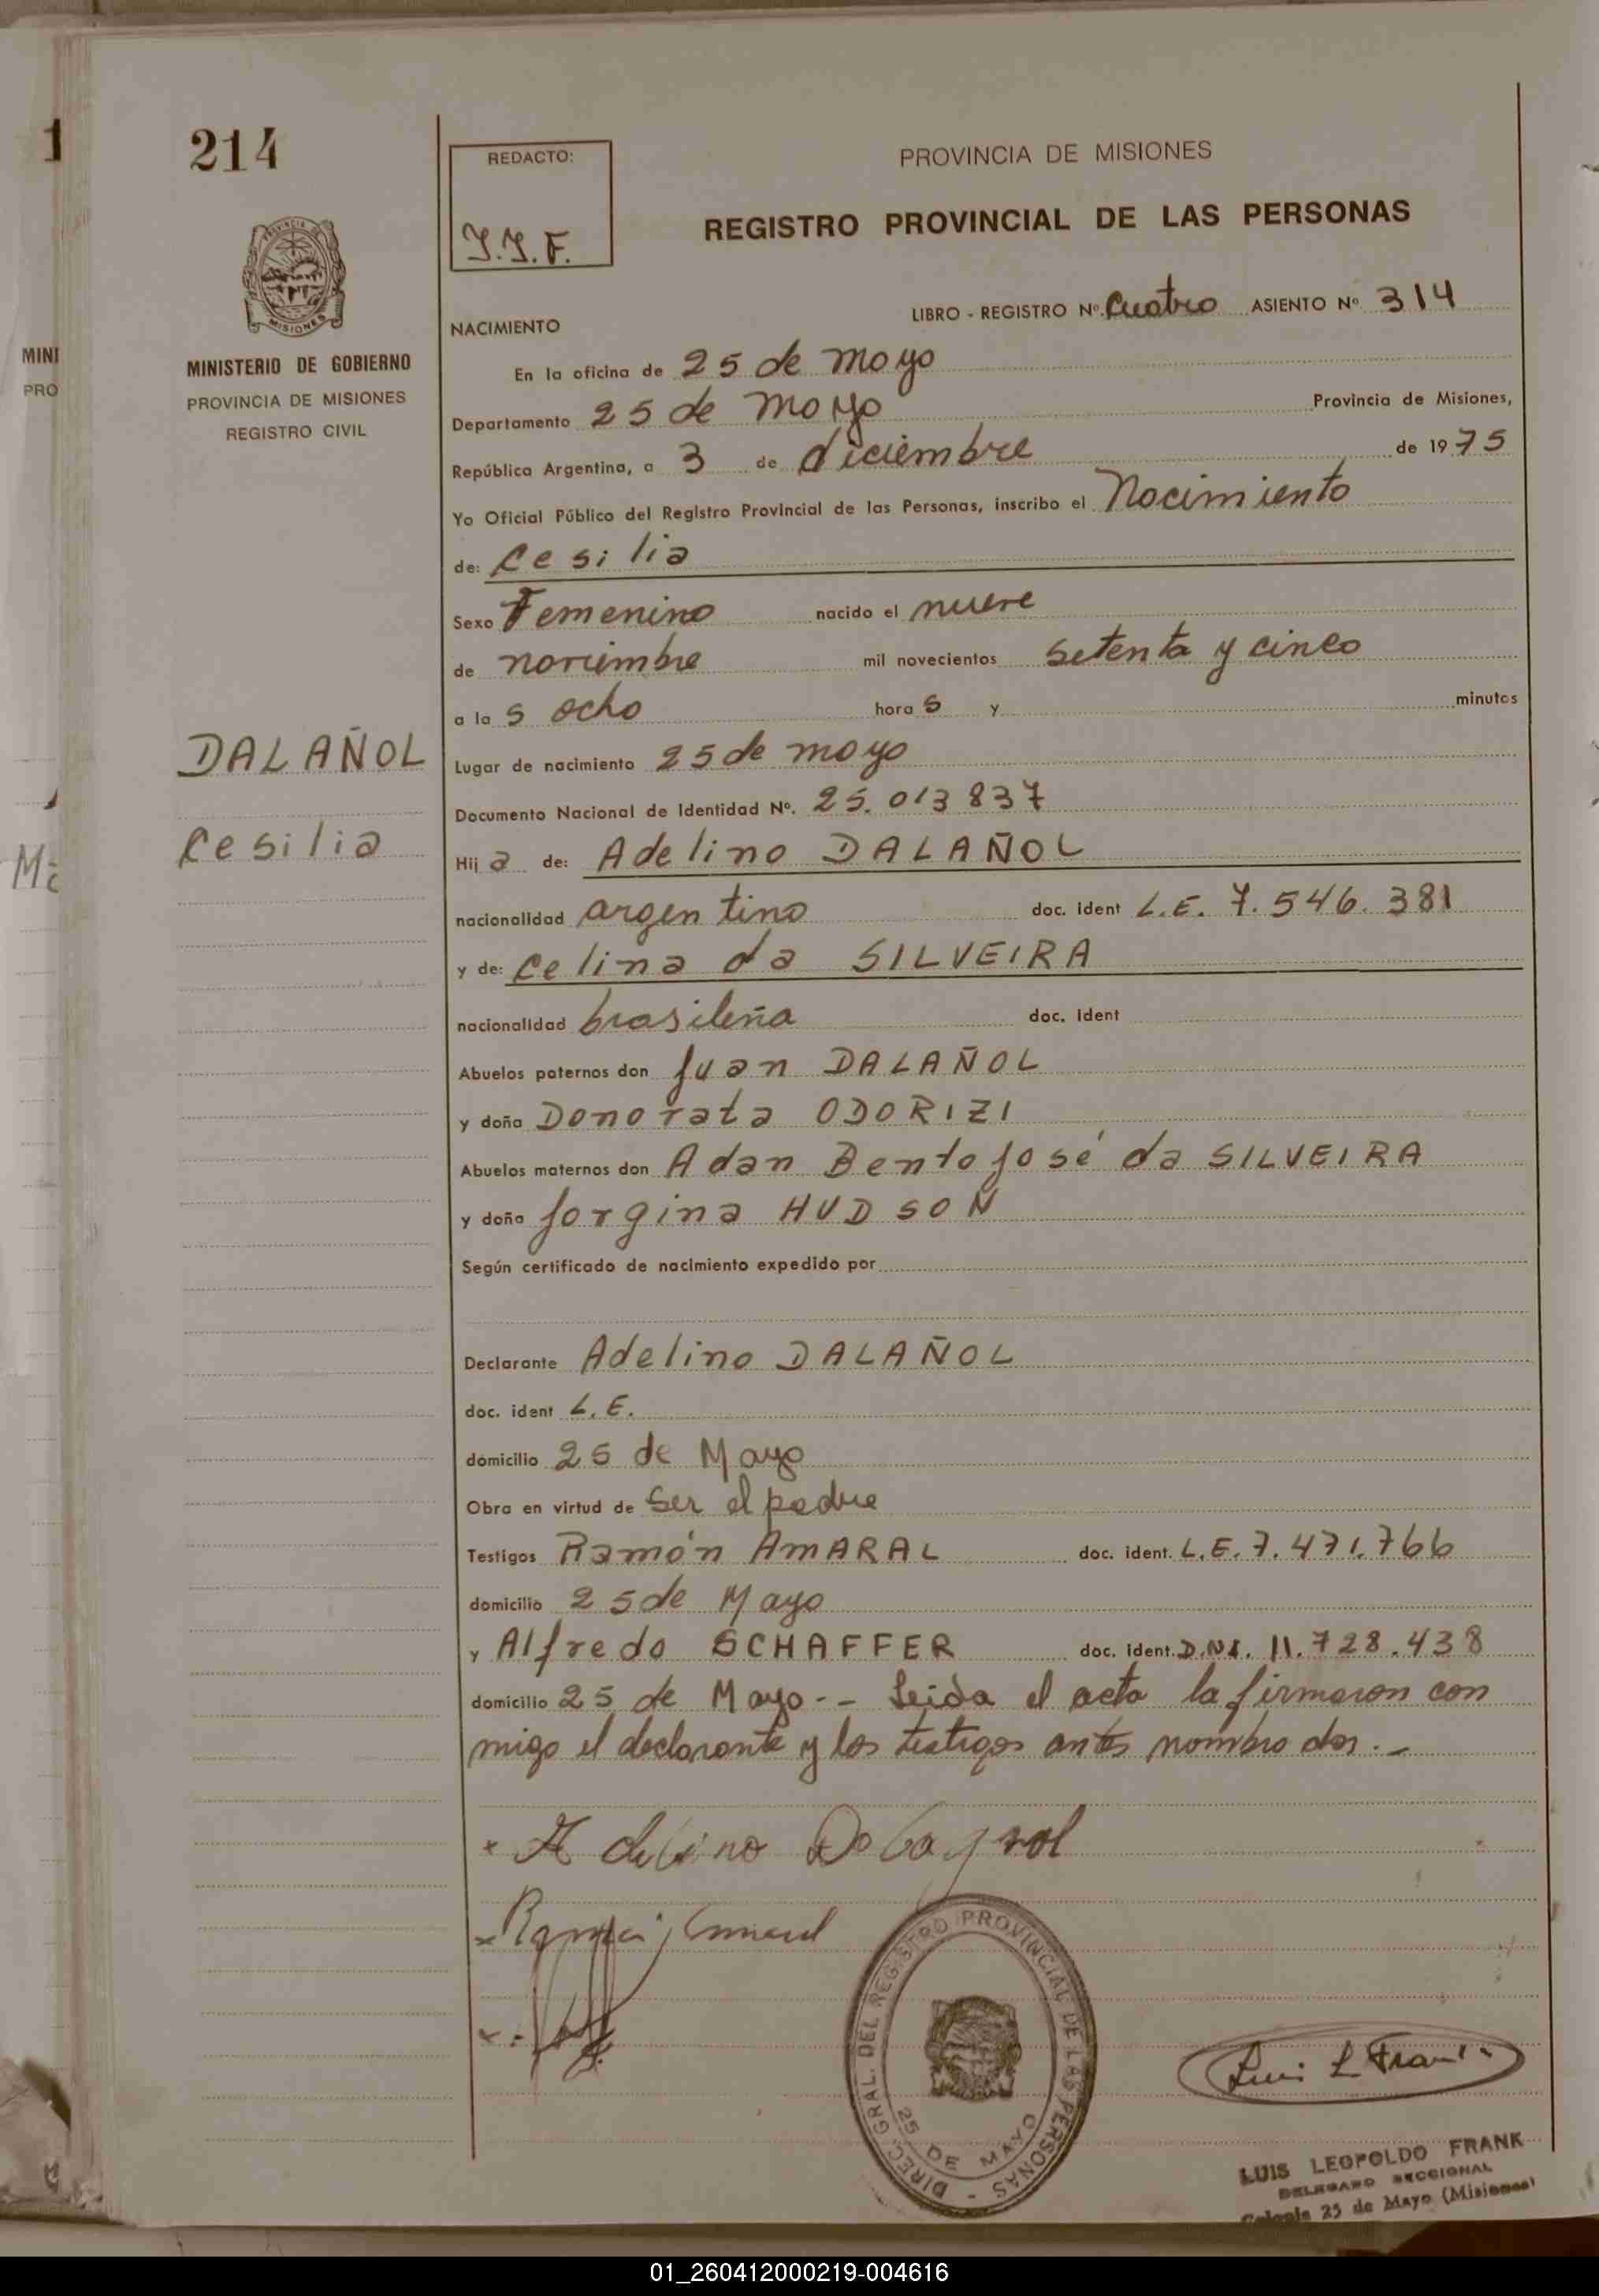 214
MINISTERIO DE GOBIERNO
PROVINCIA DE MISIONES
REGISTRO CIVIL
DALAÑOL
Cesilia
REDACTO:
J.J.F.
PROVINCIA DE MISIONES
REGISTRO PROVINCIAL DE LAS PERSONAS
LIBRO - REGISTRO Nº Cuatro ASIENTO Nº 314
NACIMIENTO
En la oficina de 25 de mayo
Departamento 25 de mayo Provincia de Misiones,
República Argentina, a 3 de diciembre de 1975
Yo Oficial Público del Registro Provincial de las Personas, inscribo el Nacimiento
de: Cesilia
Sexo Femenino nacido el nueve
de noviembre mil novecientos setenta y cinco
a las ocho horas y minutos
Lugar de nacimiento 25 de mayo
Documento Nacional de Identidad Nº. 25.013837
Hija de: Adelino DALAÑOL
nacionalidad argentino doc. ident L.E. 7.546.381
y de: Celina da SILVEIRA
nacionalidad brasileña doc. ident
Abuelos paternos don Juan DALAÑOL
y doña Donorata ODORIZI
Abuelos maternos don Adan Bento José da SILVEIRA
y doña Jorgina HUDSON
Según certificado de nacimiento expedido por
Declarante Adelino DALAÑOL
doc. ident L.E.
domicilio 25 de Mayo
Obra en virtud de ser el padre
Testigos Ramón AMARAL doc. ident. L.E. 7.471.766
domicilio 25 de Mayo
y Alfredo SCHAFFER doc. ident. D.N.I. 11.728.438
domicilio 25 de Mayo.- - Leida el acta la firmaron con
migo el declarante y los testigos antes nombrados.-
x Adelino Dalagnol
x
x
DIREC. GRAL. DEL REGISTRO PROVINCIAL DE LAS PERSONAS -
25 DE MAYO
Luis L Frank
LUIS LEOPOLDO FRANK
DELEGADO SECCIONAL
Colonia 25 de Mayo (Misiones)
1
MINI
PRO
01_260412000219-004616